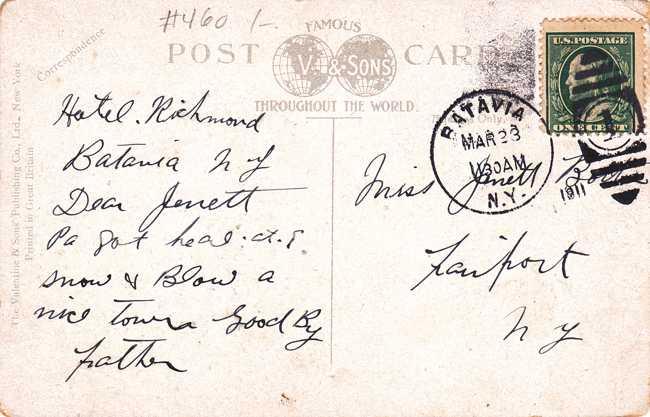 #460 1-.
FAMOUS
POST CARD
V. & SONS
THROUGHOUT THE WORLD.
Correspondence
The Valentine & Sons' Publishing Co., Ltd., New York
Printed in Great Britain
Only.
U.S. POSTAGE
ONE CENT
BATAVIA
MAR 23
1130AM
N.Y.
1911
Hotel. Richmond
Batavia N Y
Dear Jenett
Pa got heal
snow & Blow a
nice town Good By
father
Miss Jenett
Fairport
N Y